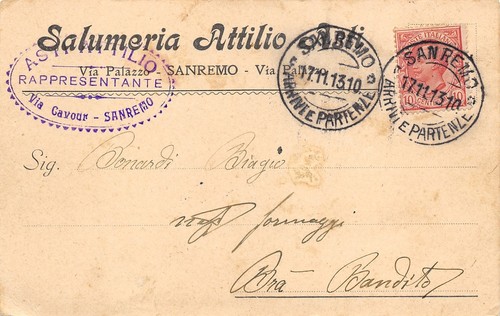 Salumeria Attilio Asti
Via Palazzo - SANREMO - Via
ASTI ATTILIO
RAPPRESENTANTE
Via Cavour - SANREMO
SANREMO
17.11.13.10
ARRIVI E PARTENZE
SANREMO
17.11.13.10
ARRIVI E PARTENZE
POSTE ITALIANE
10 10
Sig. Bonardi Biagio
formaggi
Brà Bandito